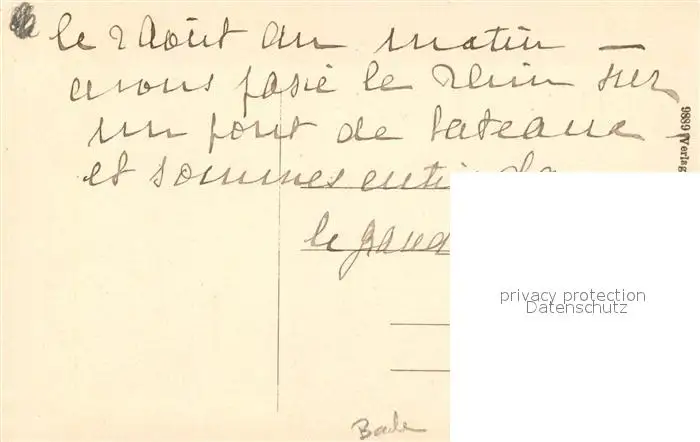 le 2 Août au matin —
avons passé le Rhin sur
un pont de bateaux —
et sommes
le grand
Bade
9889 Verlag
privacy protection
Datenschutz